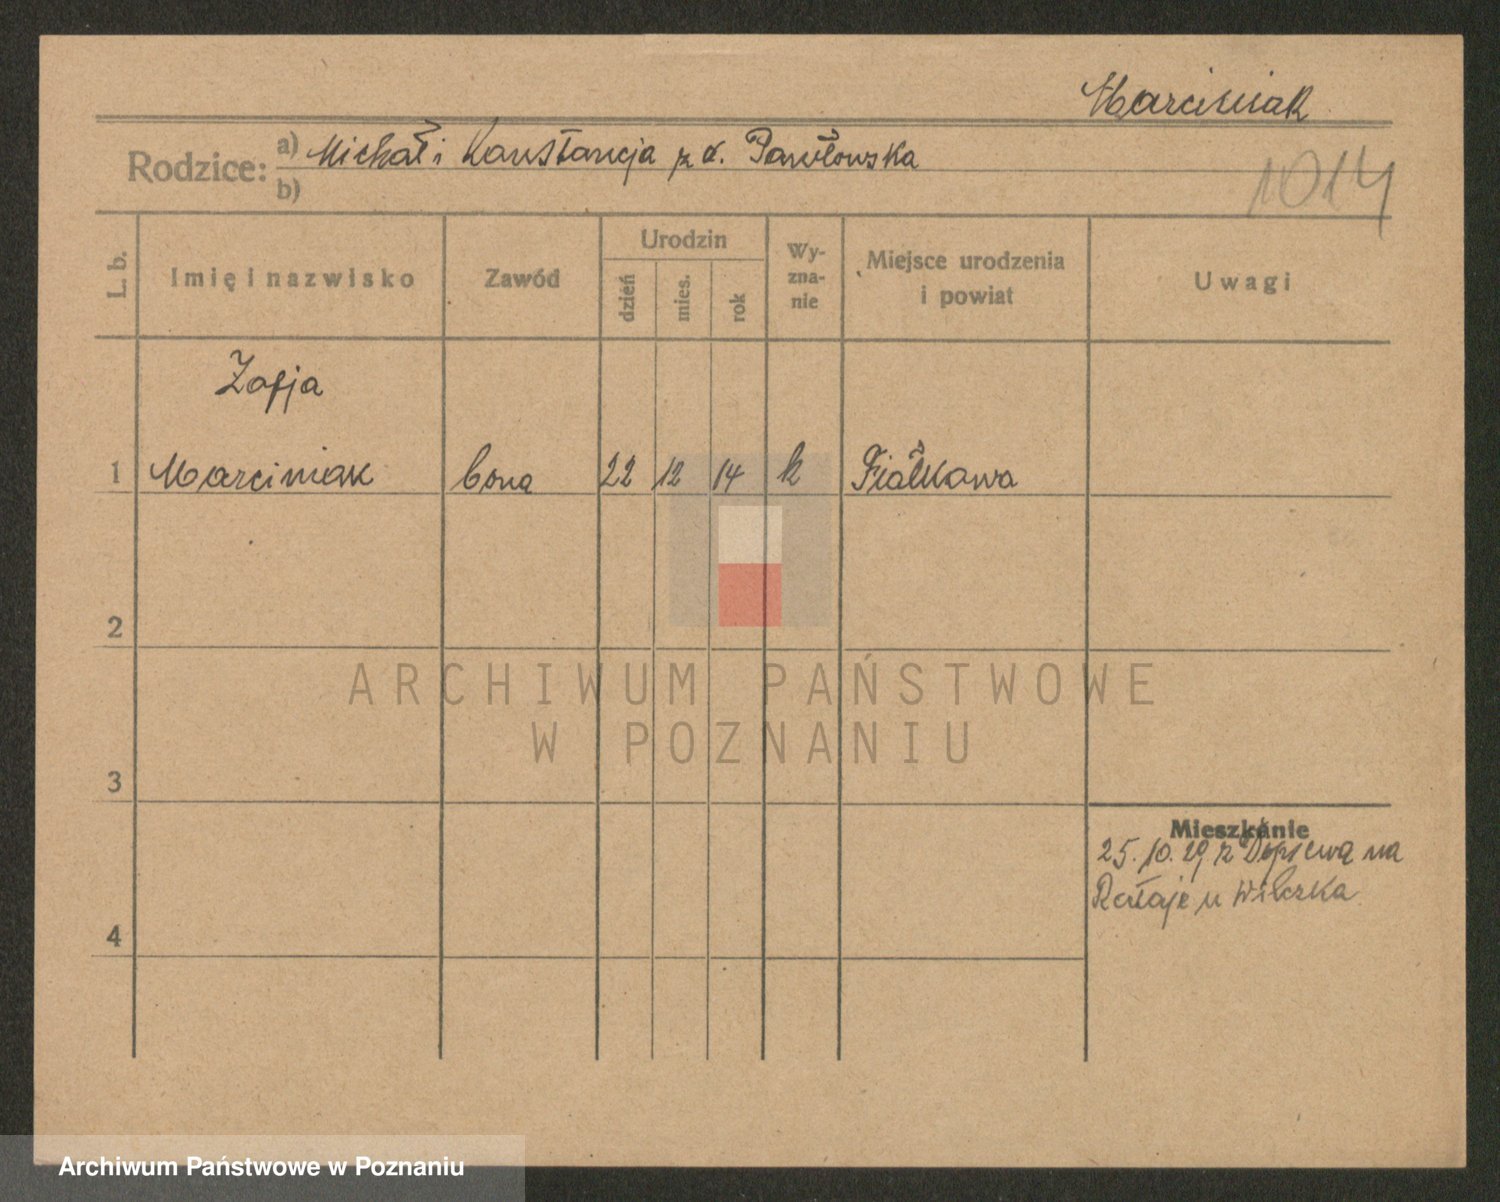 Marciniak
Rodzice: a) Michał i Konstancja z d. Pawłowska
b)
1014
L. b.
Imię i nazwisko
Zawód
Urodzin
dzień
mies.
rok
Wy-
zna-
nie
Miejsce urodzenia
i powiat
Uwagi
Zofja
1 Marciniak córka 22 12 14 k Fiałkowa
2
3
4
Mieszkanie
25. 10. 29 z Dopiewa na
Rataje u Wilczka
ARCHIWUM PAŃSTWOWE
W POZNANIU
Archiwum Państwowe w Poznaniu